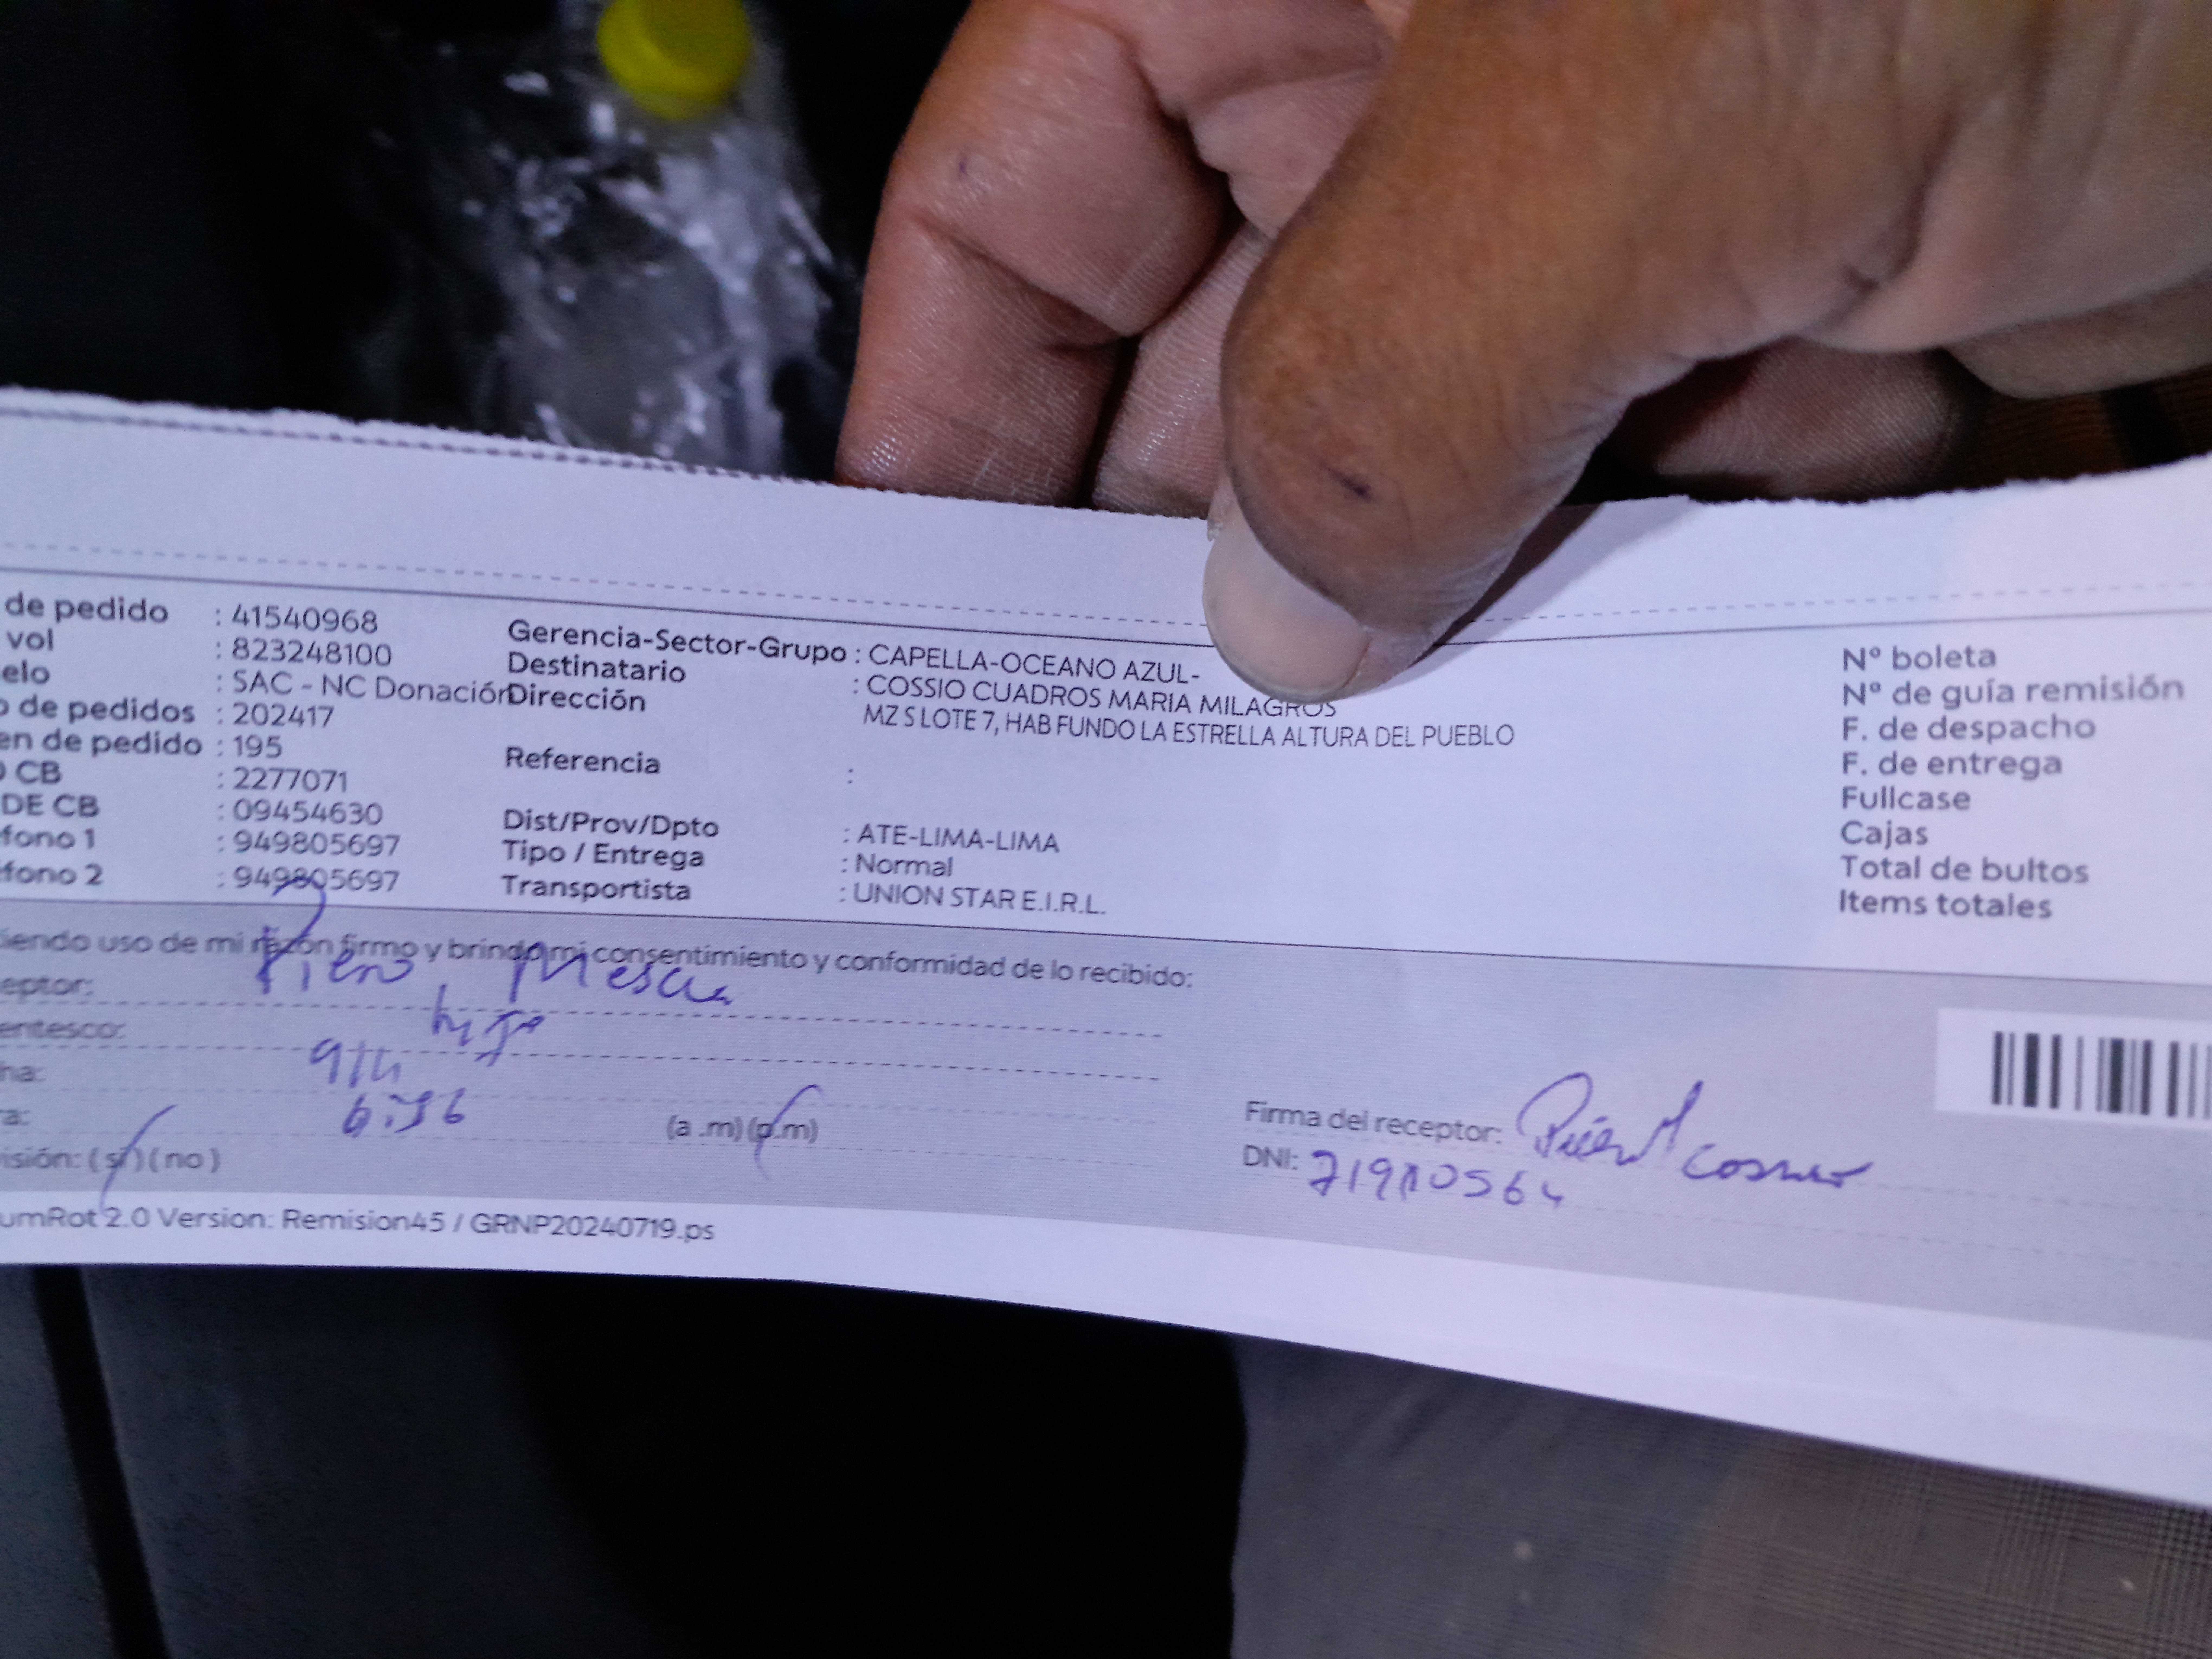 de pedido : 41540968
vol : 823248100
elo : SAC - NC Donación
o de pedidos : 202417
en de pedido : 195
CB : 2277071
DE CB : 09454630
fono 1 : 949805697
fono 2 : 949805697
Gerencia-Sector-Grupo : CAPELLA-OCEANO AZUL-
Destinatario : COSSIO CUADROS MARIA MILAGROS
Dirección MZ S LOTE 7, HAB FUNDO LA ESTRELLA ALTURA DEL PUEBLO
Referencia :
Dist/Prov/Dpto : ATE-LIMA-LIMA
Tipo / Entrega : Normal
Transportista : UNION STAR E.I.R.L.
Nº boleta
Nº de guía remisión
F. de despacho
F. de entrega
Fullcase
Cajas
Total de bultos
Items totales
iendo uso de mi razón firmo y brindo mi consentimiento y conformidad de lo recibido:
eptor: Piero
entesco: hijo
ha:
ra: (a .m) (p.m)
isión: ( si ) ( no )
Firma del receptor:
DNI:
umRot 2.0 Version: Remision45 / GRNP20240719.ps